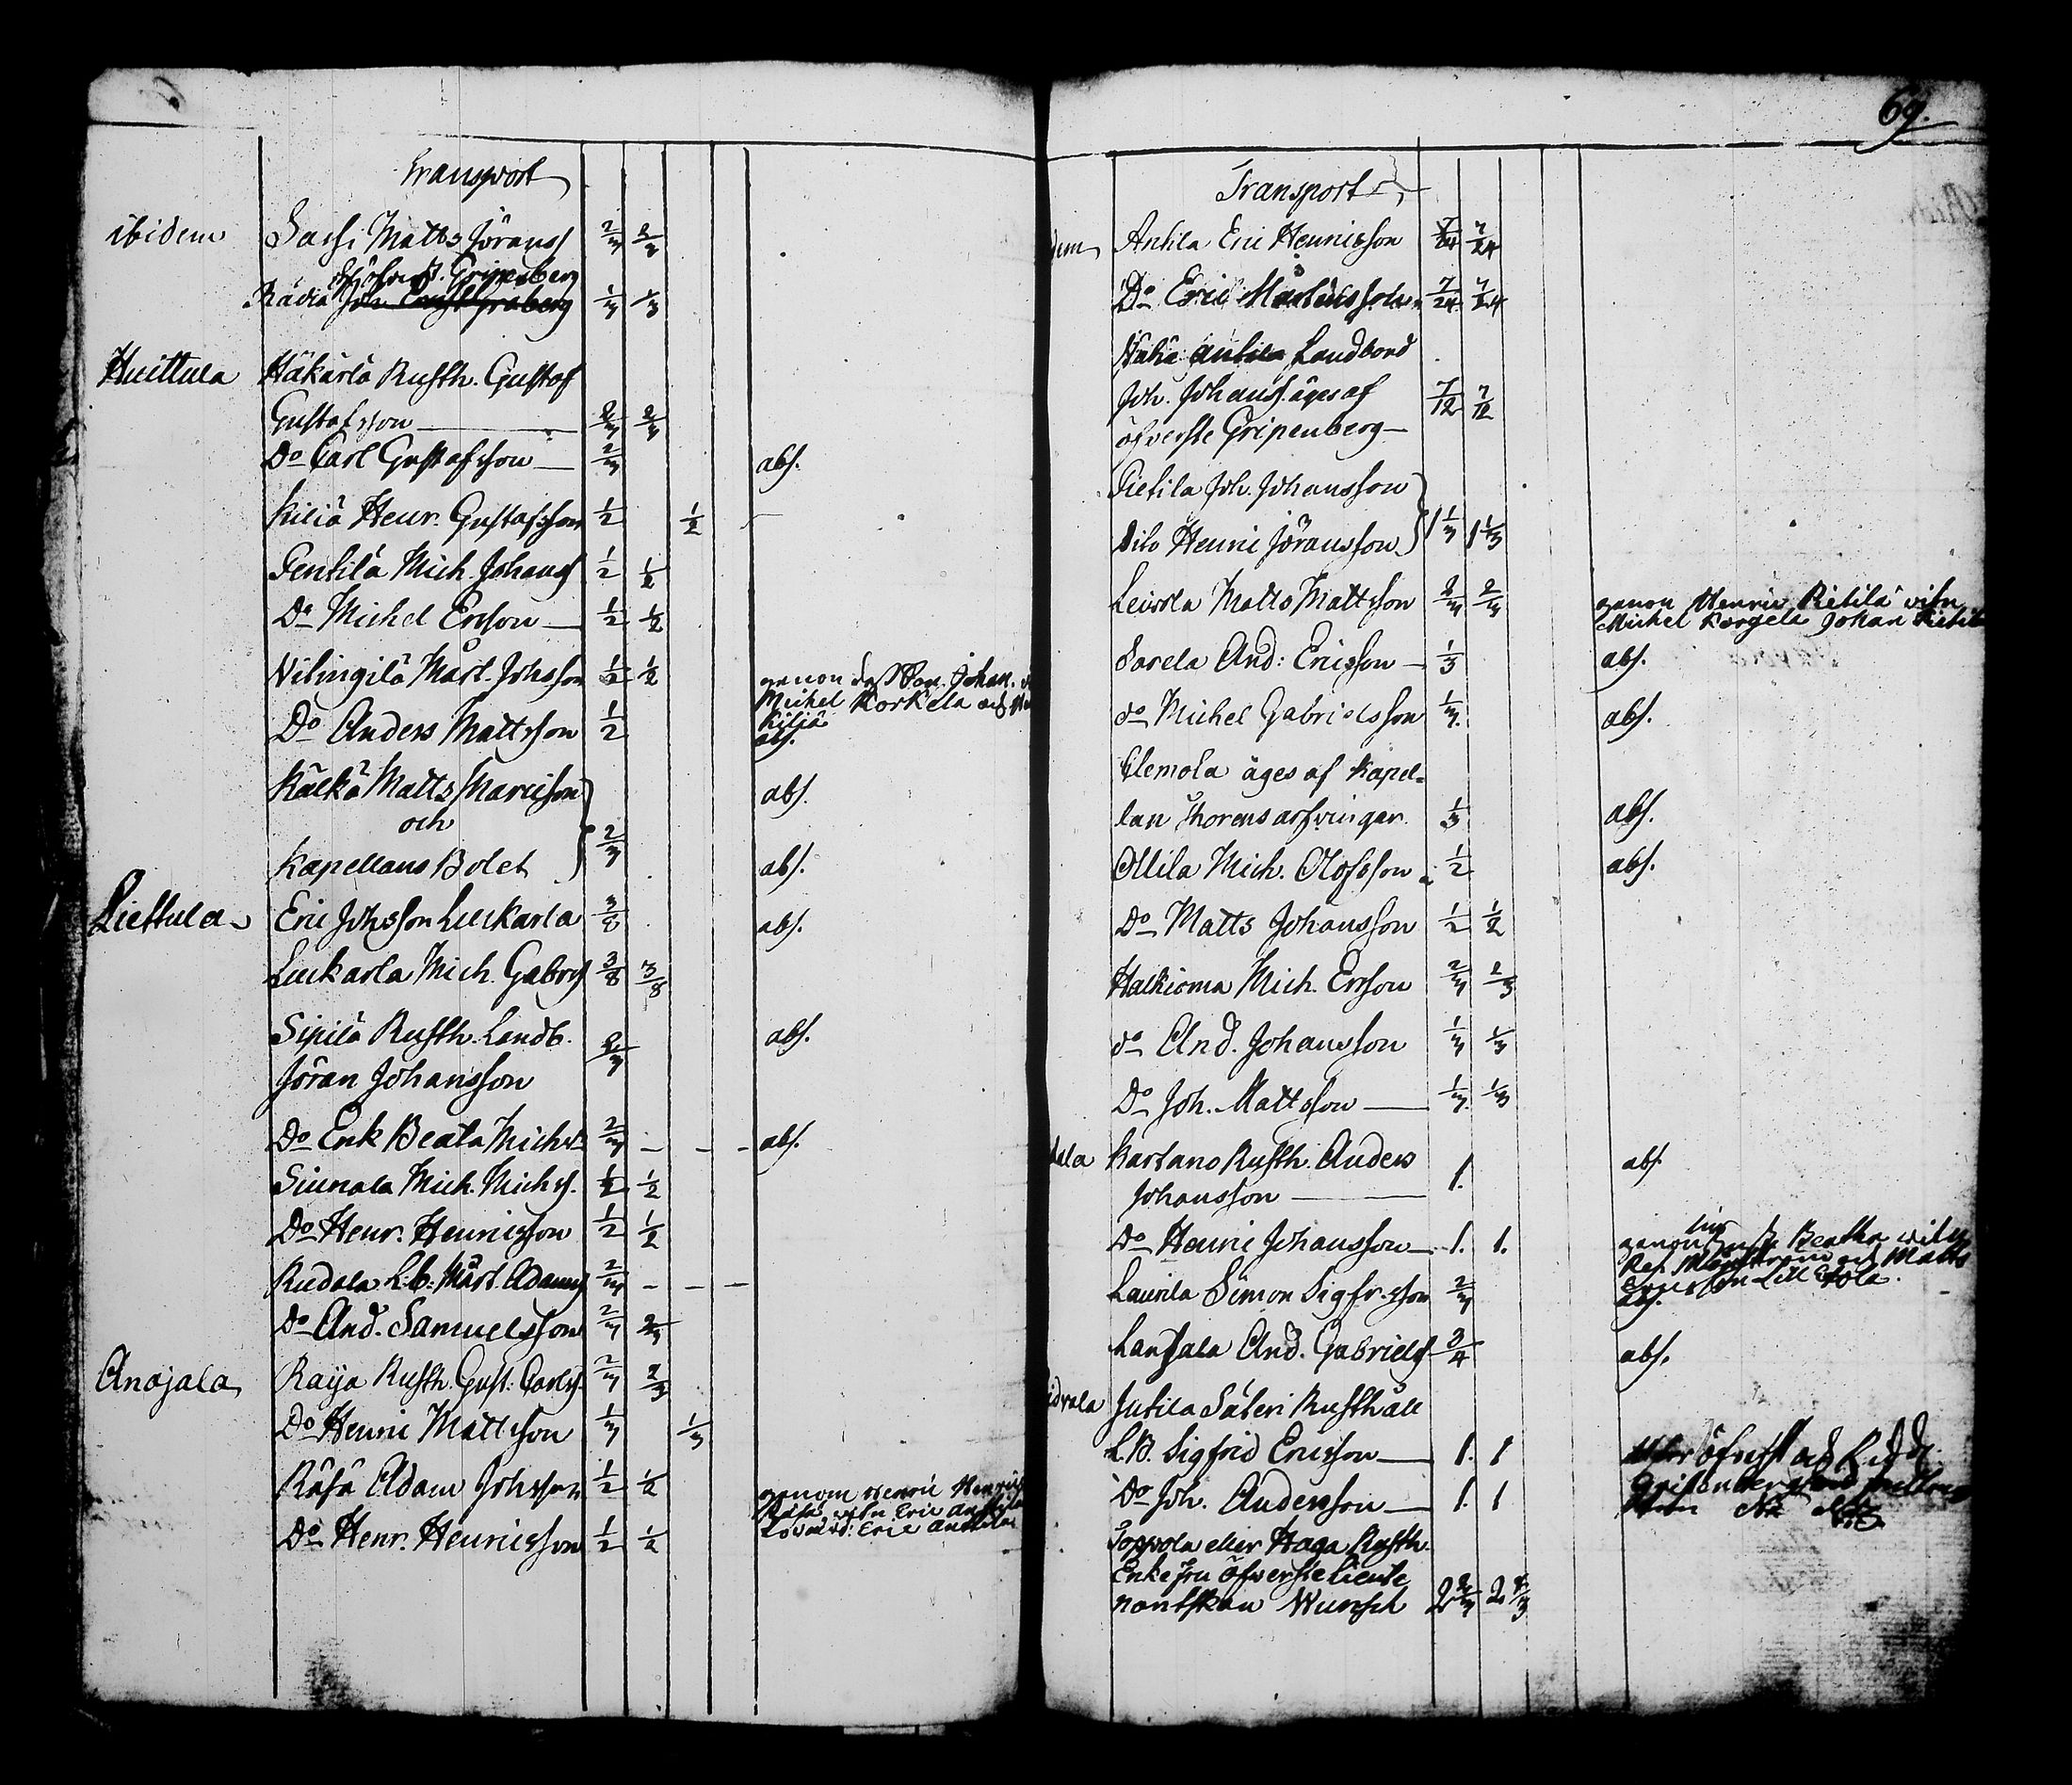 Transport
ibidem Sassi Matts Jöranss 2/3 2/3
J. Gripenberg
Rädiä 1/3 1/3
Huittula Häkärlä Rusth. Gustof
Gustafsson 2/3 2/3
Do Carl Gustafsson 2/3 abs.
Kiliä Henr. Gustafsson 1/2 1/2
Pentilä Mich. Johanss 1/2 1/2
Do Michel Ersson 1/2 1/2
Nilingilä Mårt. Johsson 1/2 1/2 genon Johan.
Michel Korkela och
Do Anders Mattsson 1/2 Kiliä
abs.
Kälkä Matts abs.
och
Kapellans Bolet 2/3 abs.
Liettula Eric Johsson Luckarla 3/8 abs.
Luckarla Mich. Gabrs 3/8 3/8
Sipilä Rusth. Landb. abs.
Jöran Johansson 2/3
Do Enk Beata Michs 2/3 - - - abs.
Siunala Mich. Michs. 1/2 1/2
Do Henr. Henricsson 1/2 1/2
Rudala L.b: Mårt. Adamss 2/3 - - -
Do And. Samuelsson 2/3 2/3
Anajala Raija Rusth. Gust: Carlss 2/3 2/3
Do Henric Mattsson 1/3 1/3
Räfsä Adam Johsson 1/2 1/2 genom Henric Henrics
witn Eric Anttila
Do Henr. Henricsson 1/2 1/2 Eric Anttila
69.
Transport
dem Antila Eric Henricsson 7/24 7/24
Do Eric Mårtensson 7/24 7/24
Wähä Antila Landbond
Joh. Johanss. äges af 7/12 7/12
öfverste Gripenberg
Pietila Joh. Johansson
Dito Henric Jöransson 1 1/3 1 1/3
Leivola Matts Mattsson 2/3 2/3 genon Henric Pietilä witn
Michel Johan
Sorela And: Ericsson 1/3 abs.
do Michel Gabrielsson 1/3 abs.
Clemola äges af Kapel-
lan Thorens arfvingar 1/3 abs.
Ollila Mich. Olofsson 1/2 abs.
Do Matts Johansson 1/2 1/2
Halkioma Mich. Ersson 2/3 2/3
do And. Johansson 1/3 1/3
Do Joh. Mattsson 1/3 1/3
Kartano Rusth. Anders abs.
Johansson 1.
Do Henric Johansson 1. 1. genon Beatha witn
och Matts
Laurila Simon Sigfr.sson 2/3 Ericsson
abs.
And. Gabriels 3/4 abs.
Jutila Säteri Rusthåll
L.B. Sigfrid Ericsson 1. 1
Do Joh. Andersson 1. 1
Toppola eller Haga Rusth.
Enkefru Öfversteliente
nantskan Wunsch 2 2/3 2 2/3